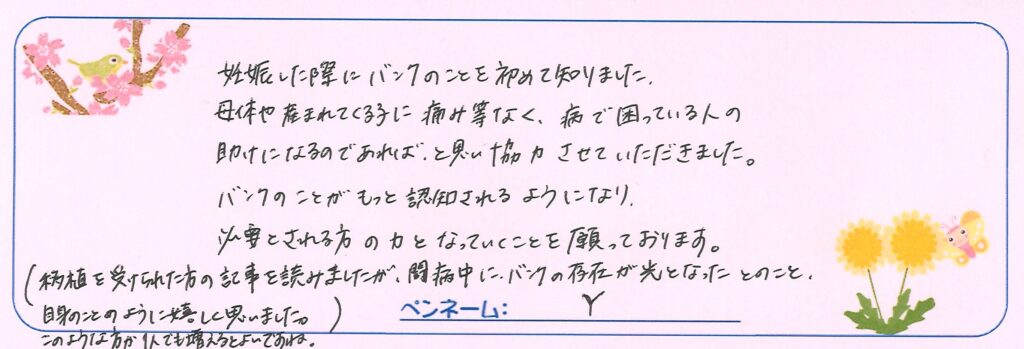 妊娠した際にバンクのことを初めて知りました。
母体や産まれてくる子に痛み等なく、病で困っている人の
助けになるのであれば、と思い協力させていただきました。
バンクのことがもっと認知されるようになり、
必要とされる方の力となっていくことを願っております。
(移植を受けられた方の記事を読みましたが、闘病中に、バンクの存在が光となったとのこと、
自身のことのように嬉しく思いました。)
このような方が1人でも増えるとよいですね。
ペンネーム: Y